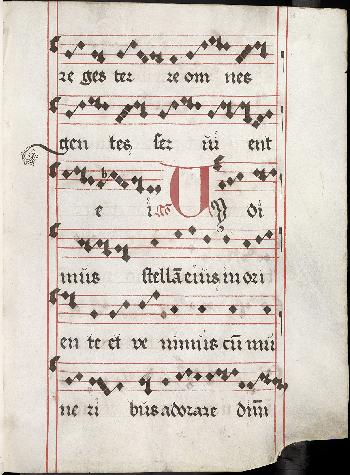 re ges ter re om nes
gen tes ser ui ent
e i co V oi
mus stellā eius in ori
en te et ve nimus cū mu
ne ri bus adorare dim̄